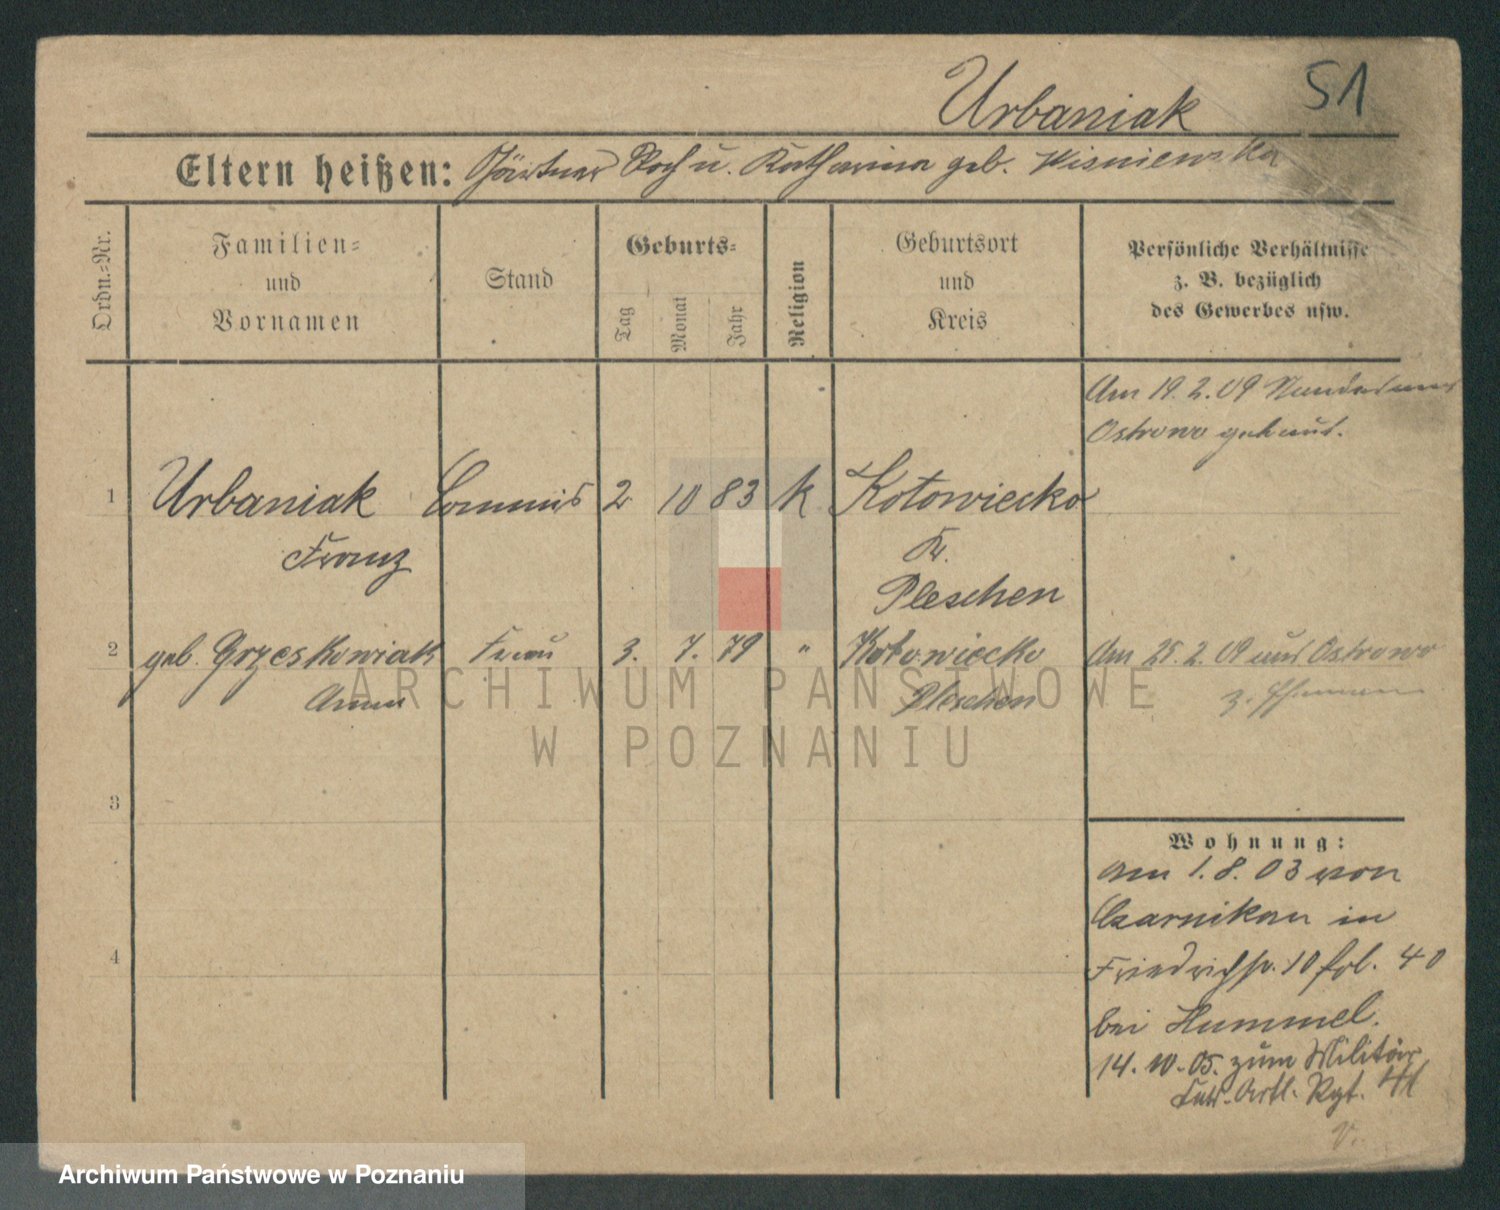 Urbaniak 51
Eltern heißen: Gärtner Roch u. Katharina geb. Wisniewska
Ordn.-Nr.
Familien-
und
Vornamen
Stand
Geburts-
Tag
Monat
Jahr
Religion
Geburtsort
und
Kreis
Persönliche Verhältnisse
z. B. bezüglich
des Gewerbes usw.
Am 19.2.09 Standesamt
Ostrowo geheirat.
1 Urbaniak Commis 2 10 83 k Kotowiecko
Franz Kr.
Pleschen
2 geb. Grzeskowiak Frau 3. 7. 79 " Kotowiecko Am 25.2.09 aus Ostrowo
Anna Pleschen z. Ehemann
ARCHIWUM PAŃSTWOWE
W POZNANIU
3
4
Wohnung:
Am 1.8.03 von
Czarnikau in
Friedrichstr. 10 fol. 40
bei Hummel.
14.10.05. zum Militär
Artl. Rgt.
V.
Archiwum Państwowe w Poznaniu